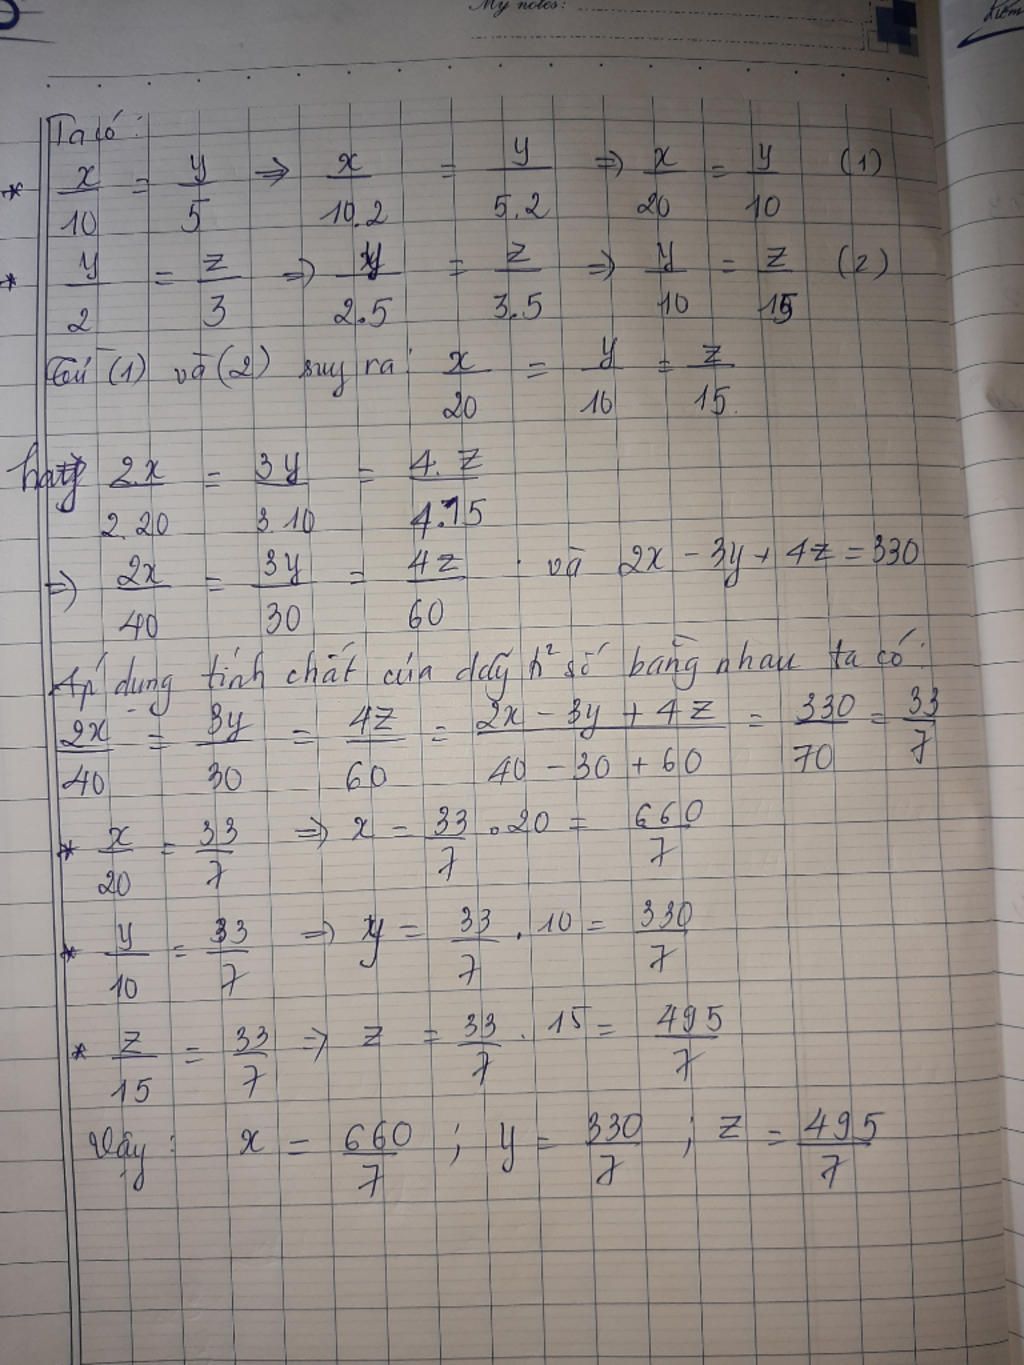 My notes:
Ta có:
* x/10 = y/5 ⇒ x/10.2 = y/5.2 ⇒ x/20 = y/10 (1)
* y/2 = z/3 ⇒ y/2.5 = z/3.5 ⇒ y/10 = z/15 (2)
Từ (1) và (2) suy ra: x/20 = y/10 = z/15
hay 2.x/2.20 = 3y/3.10 = 4.z/4.15
⇒ 2x/40 = 3y/30 = 4z/60 và 2x - 3y + 4z = 330
Áp dụng tính chất của dãy tỉ số bằng nhau ta có:
2x/40 = 3y/30 = 4z/60 = 2x - 3y + 4z/40 - 30 + 60 = 330/70 = 33/7
* x/20 = 33/7 ⇒ x = 33/7 . 20 = 660/7
* y/10 = 33/7 ⇒ y = 33/7 . 10 = 330/7
* z/15 = 33/7 ⇒ z = 33/7 . 15 = 495/7
Vậy: x = 660/7 ; y = 330/7 ; z = 495/7